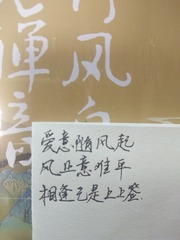 风
禅音
爱意随风起
风止意难平
相逢已是上上签